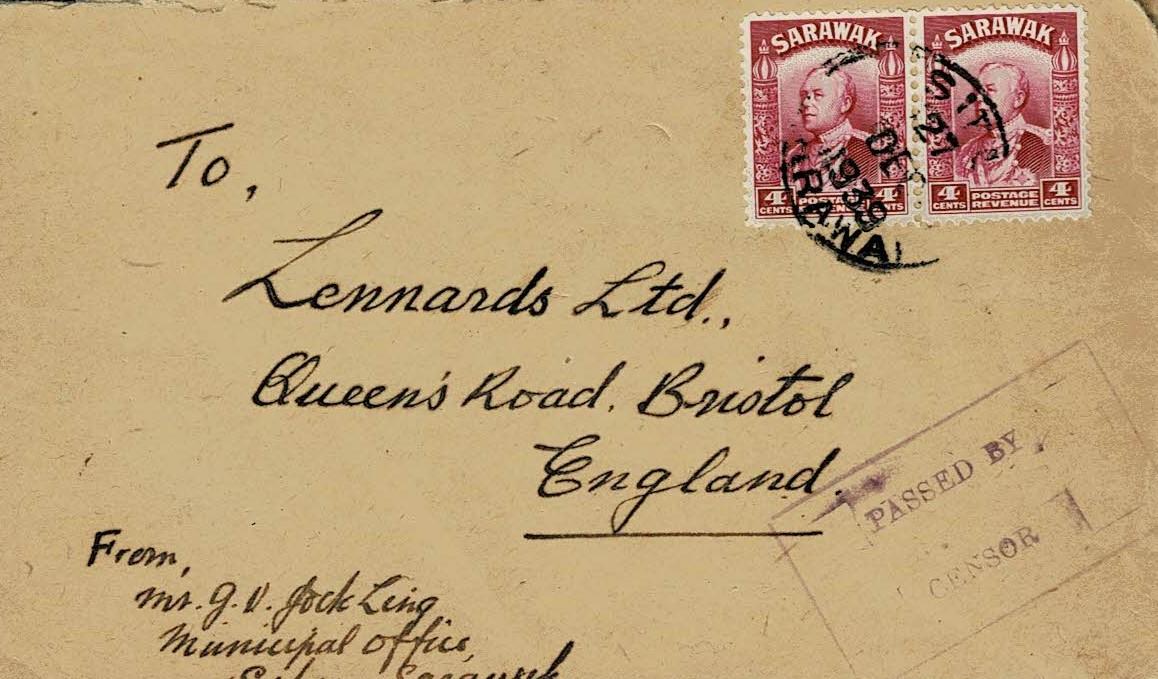 SARAWAK
SARAWAK
4 CENTS 4
4 CENTS POSTAGE REVENUE 4 CENTS
27
1939
To,
Lennards Ltd.,
Queen's Road, Bristol
England.
PASSED BY
CENSOR
From,
Mr. G. V. Jock Ling
Municipal Office,
Sarawak